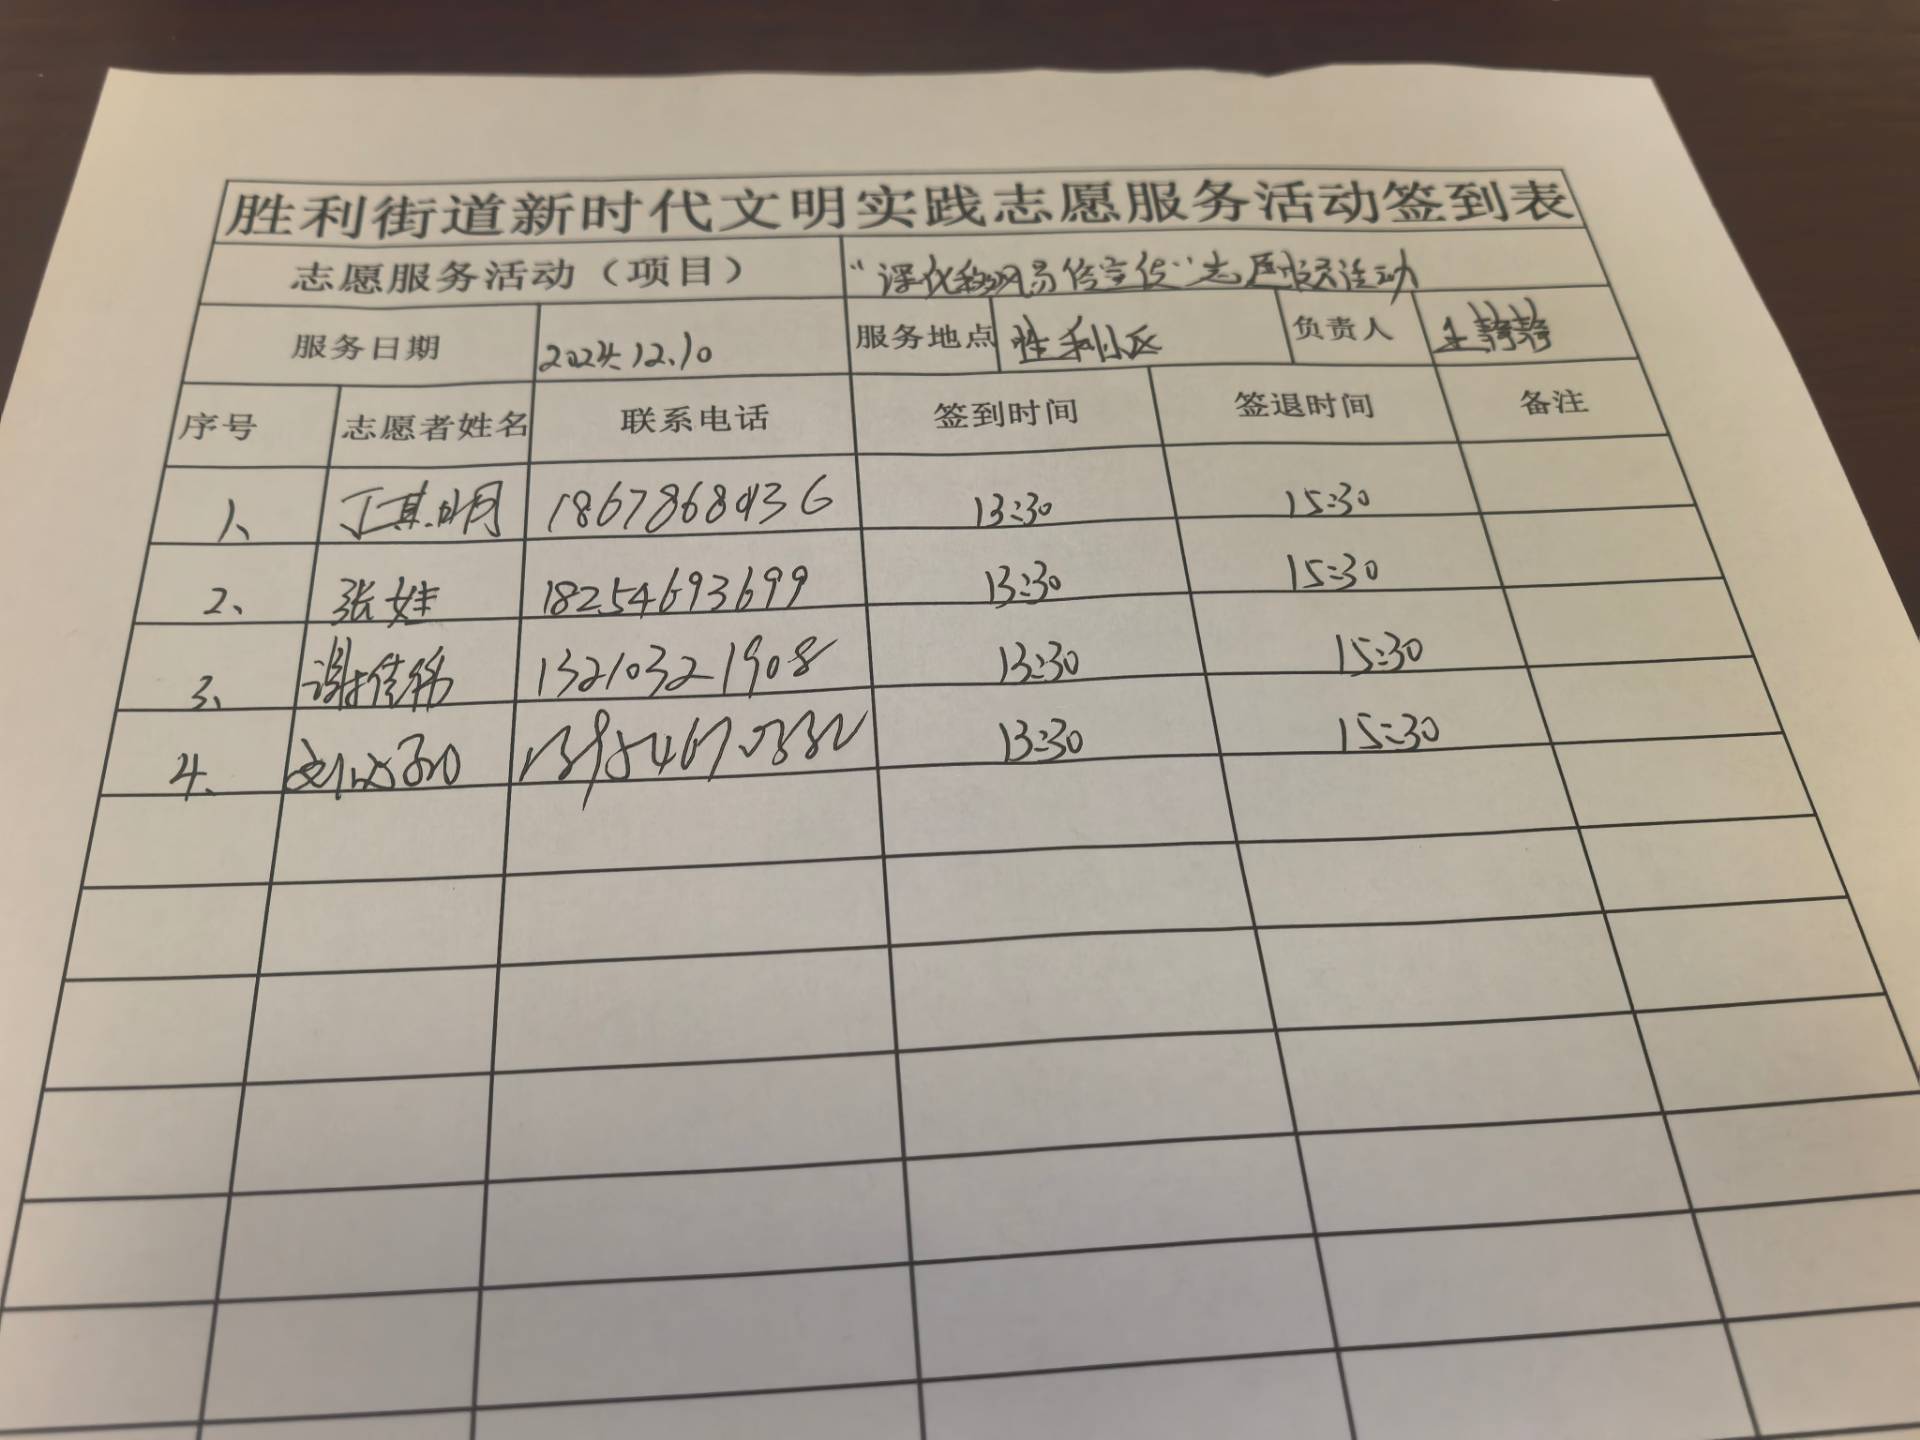 胜利街道新时代文明实践志愿服务活动签到表
志愿服务活动（项目） “深化移风易俗宣传”志愿服务活动
服务日期 2024.12.10 服务地点 胜利小区 负责人 王静静
序号 志愿者姓名 联系电话 签到时间 签退时间 备注
1、 丁其明 18678680136 13:30 15:30
2、 张娃 18254693699 13:30 15:30
3、 谢佳伟 13210321908 13:30 15:30
4、 13:30 15:30